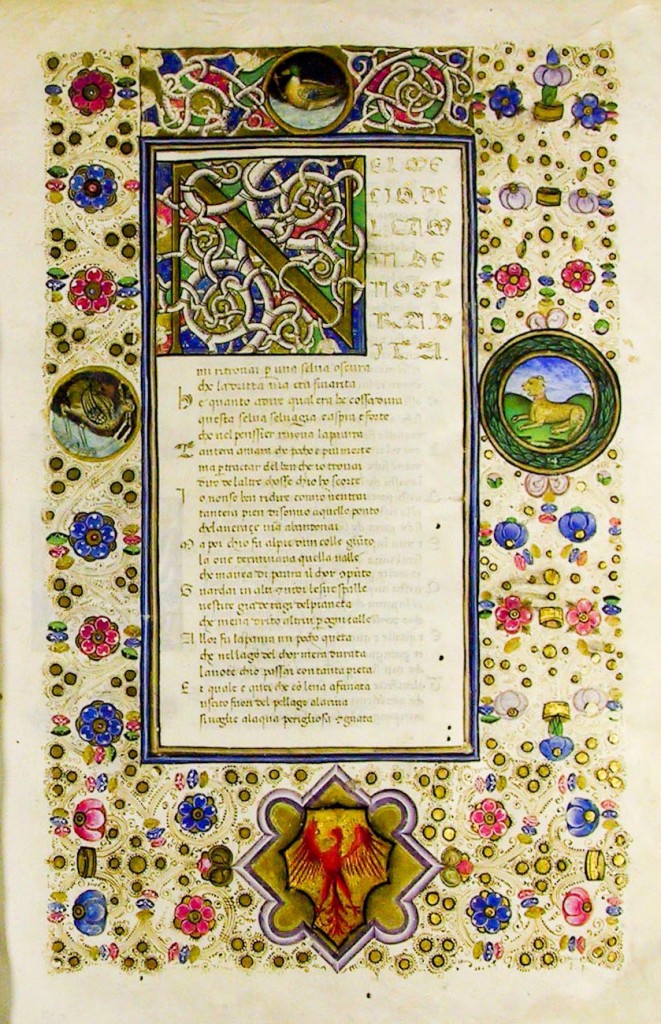 NEL ME
CIO. DE
L CAM
IN. DE
NOST
RA V
ITA.
mi ritrouai p una selua oscura
che la diritta uia era smarita
E quanto adire qual era he cossa dura
questa selua seluagia easpra e forte
che nel penssier rinoua la paura
Tant era amara che pocho e piu morte
ma p tractar del ben che io trouai
diro de laltre chosse chio ho scorte
Io non so ben ridire comio uentrai
tantera pien di sonno aquello ponto
che la uerace uia abandonai
Ma poi chio fu alpie dun colle giũto
la oue terminaua quella ualle
che mauea di paura il chor cõpũto
Guardai in alto et uidi le sue spalle
uestite gia de ragi del pianeta
che mena drito altrui p ogni calle
Allor fu la paura un pocho queta
che nel lago del chor mera durata
la note chio passai con tanta pieta
E quale e quei che cõ lena afanata
uscito fuori del pellago alariua
si uolge alaqua perigliosa e guata